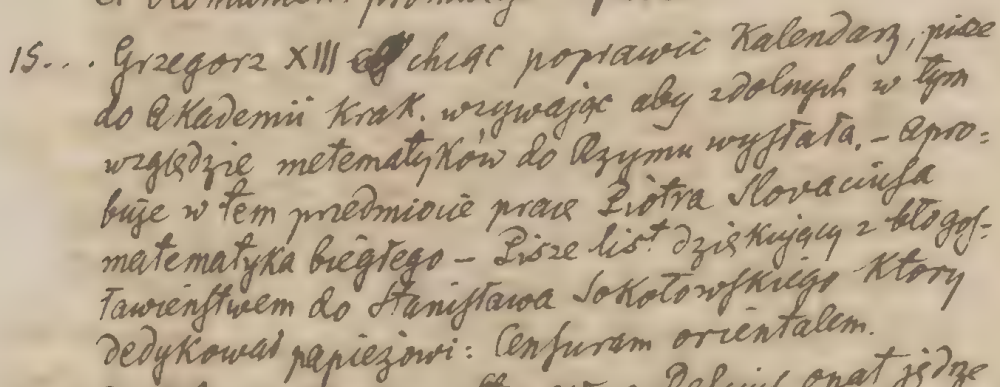 15... Grzegorz XIII chcąc poprawić Kalendarz, pisze
do Akademii Krak. wzywając aby zdolnych w tym
względzie metematyków do Rzymu wysłała. – Apro-
buje w tem przedmiocie pracę Piotra Slovaciusa
matematyka biegłego – Pisze list dziękujący z błogos-
ławieństwem do Stanisława Sokołowskiego Ktory
dedykował papieżowi: Censuram orientalem.
opat jędrze